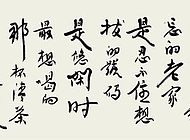 忘的老家
是忍不住想
拨的号码
是悠闲时
最想喝的
那杯清茶